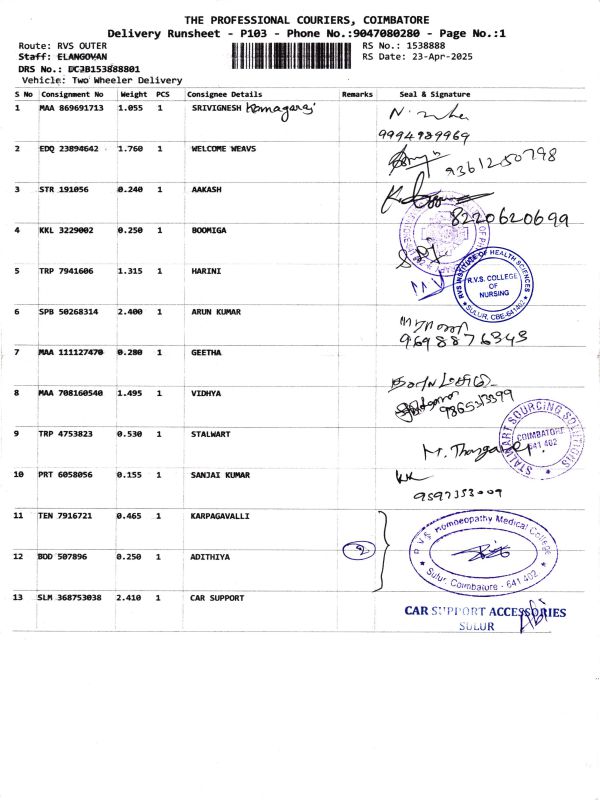 THE PROFESSIONAL COURIERS, COIMBATORE
Delivery Runsheet - P103 - Phone No.:9047080280 - Page No.:1
Route: RVS OUTER RS No.: 1538888
Staff: ELANGOVAN RS Date: 23-Apr-2025
DRS No.: DCJB153888801
Vehicle: Two Wheeler Delivery
S No Consignment No Weight PCS Consignee Details Remarks Seal & Signature
1 MAA 869691713 1.055 1 SRIVIGNESH Kamagaraj
9994989969
2 EDQ 23894642 1.760 1 WELCOME WEAVS
9361250798
3 STR 191056 0.240 1 AAKASH
8220620699
4 KKL 3229002 0.250 1 BOOMIGA
5 TRP 7941606 1.315 1 HARINI
RVS INSTITUTE OF HEALTH SCIENCES
R.V.S. COLLEGE
OF
NURSING
SULUR, CBE-641402
6 SPB 50268314 2.400 1 ARUN KUMAR
9698876343
7 MAA 111127470 0.280 1 GEETHA
8 MAA 708160540 1.495 1 VIDHYA
9 TRP 4753823 0.530 1 STALWART
STALWART SOURCING SOLUTIONS
COIMBATORE
641 402
10 PRT 6058056 0.155 1 SANJAI KUMAR
9597353009
11 TEN 7916721 0.465 1 KARPAGAVALLI
R V S Homoeopathy Medical College
12 BOD 507896 0.250 1 ADITHIYA 2
Sulur, Coimbatore - 641 402
13 SLM 368753038 2.410 1 CAR SUPPORT
CAR SUPPORT ACCESSORIES
SULUR